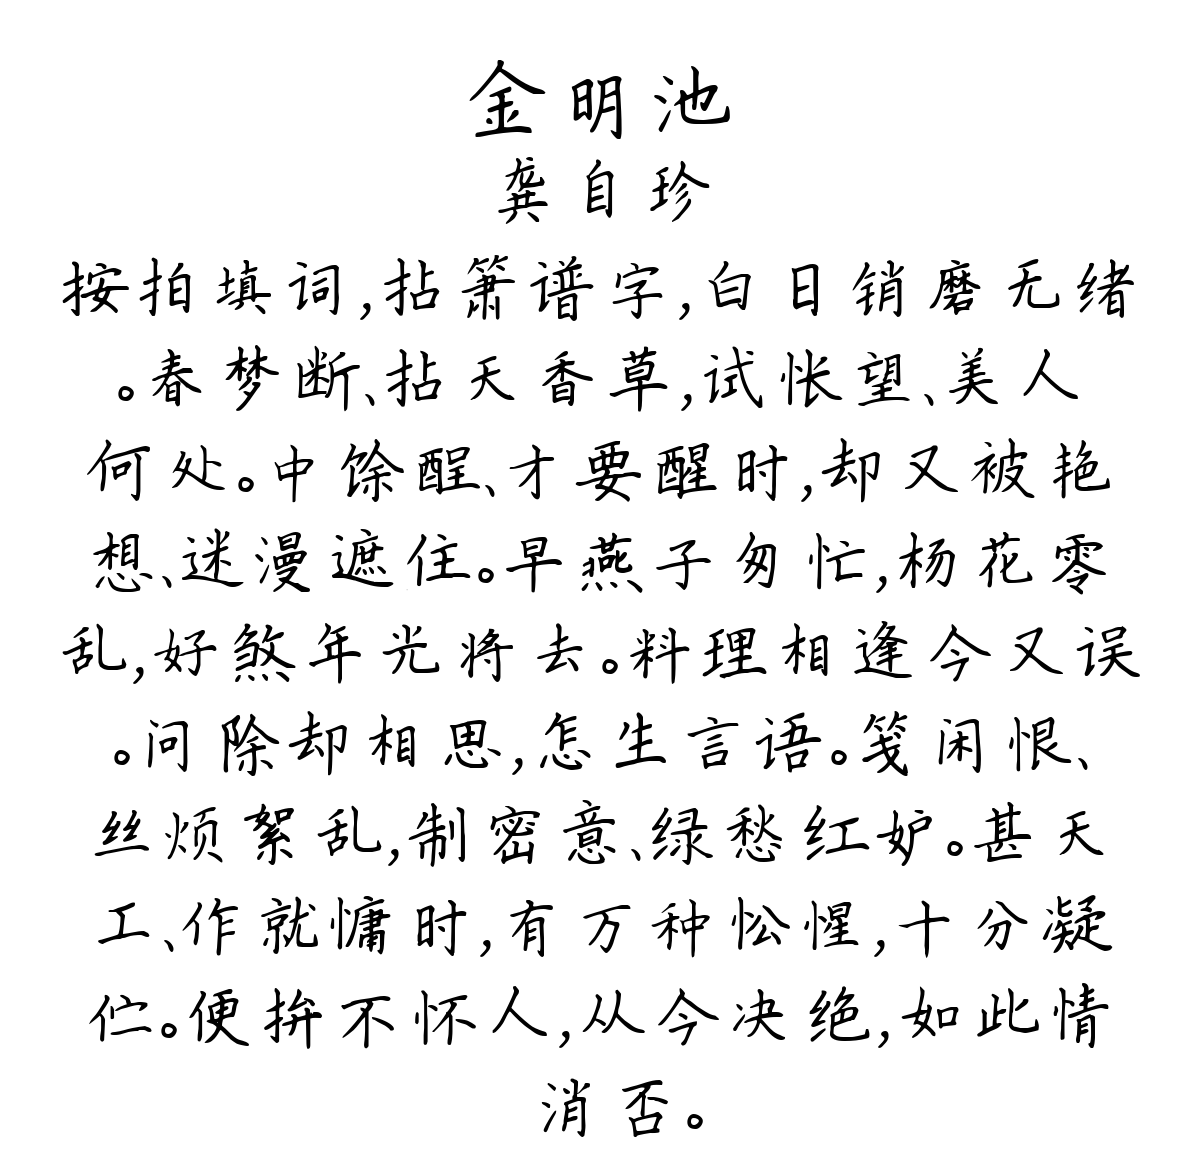 金明池
龚自珍
按拍填词,拈箫谱字,白日销磨无绪
。春梦断、拈天香草,试怅望、美人
何处。中馀酲、才要醒时,却又被艳
想、迷漫遮住。早燕子匆忙,杨花零
乱,好煞年光将去。料理相逢今又误
。问除却相思,怎生言语。笺闲恨、
丝烦絮乱,制密意、绿愁红妒。甚天
工、作就慵时,有万种忪惺,十分凝
伫。便拚不怀人,从今决绝,如此情
消否。